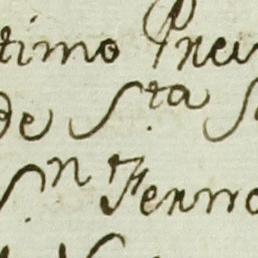 timo Preu
de S.ta S
S.n Ferro